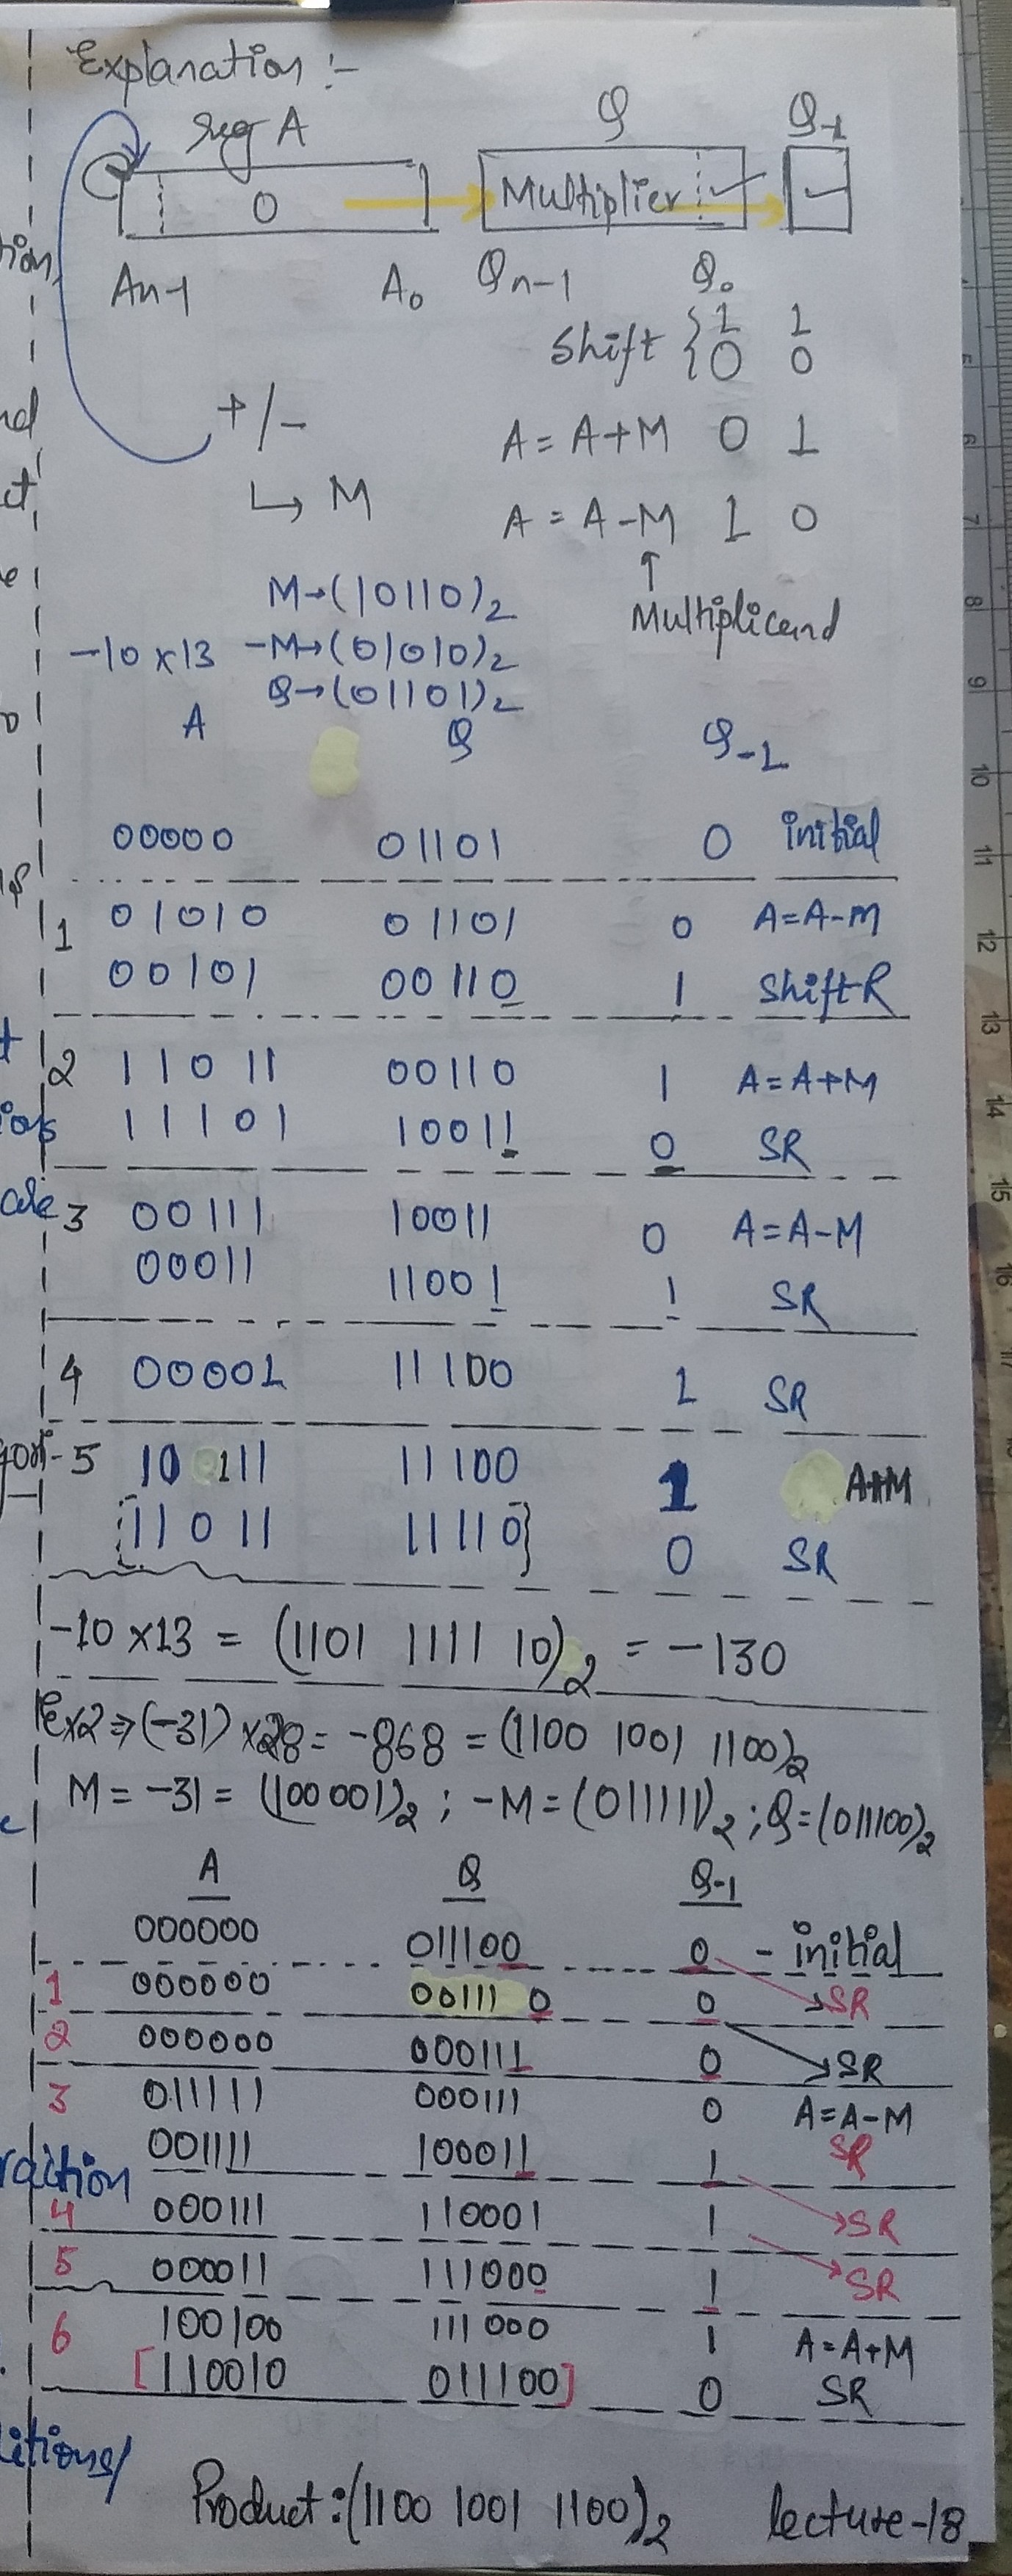 Explanation :-
reg A Q Q-1
0 Multiplier
An-1 A0 Qn-1 Q0
Shift { 1 1
0 0
+/- A = A+M 0 1
↳ M A = A-M 1 0
↑
Multiplicand
M→(10110)2
-10 x 13 -M→(01010)2
Q→(01101)2
A Q Q-1
00000 01101 0 initial
1 01010 01101 0 A=A-M
00101 00110 1 Shift R
2 11011 00110 1 A=A+M
11101 10011 0 SR
3 00111 10011 0 A=A-M
00011 11001 1 SR
4 00001 11100 1 SR
5 10111 11100 1 A+M
11011 11110} 0 SR
-10 x13 = (1101 1111 10)2 = -130
Ex2⇒(-31) x28 = -868 = (1100 1001 1100)2
M = -31 = (100001)2 ; -M = (011111)2 ; Q=(011100)2
A Q Q-1
000000 011100 0 - initial
1 000000 001110 0 SR
2 000000 000111 0 SR
3 011111 000111 0 A=A-M
001111 100011 1 SR
4 000111 110001 1 SR
5 000011 111000 1 SR
6 100100 111000 1 A=A+M
[110010 011100] 0 SR
Product :(1100 1001 1100)2 lecture-18